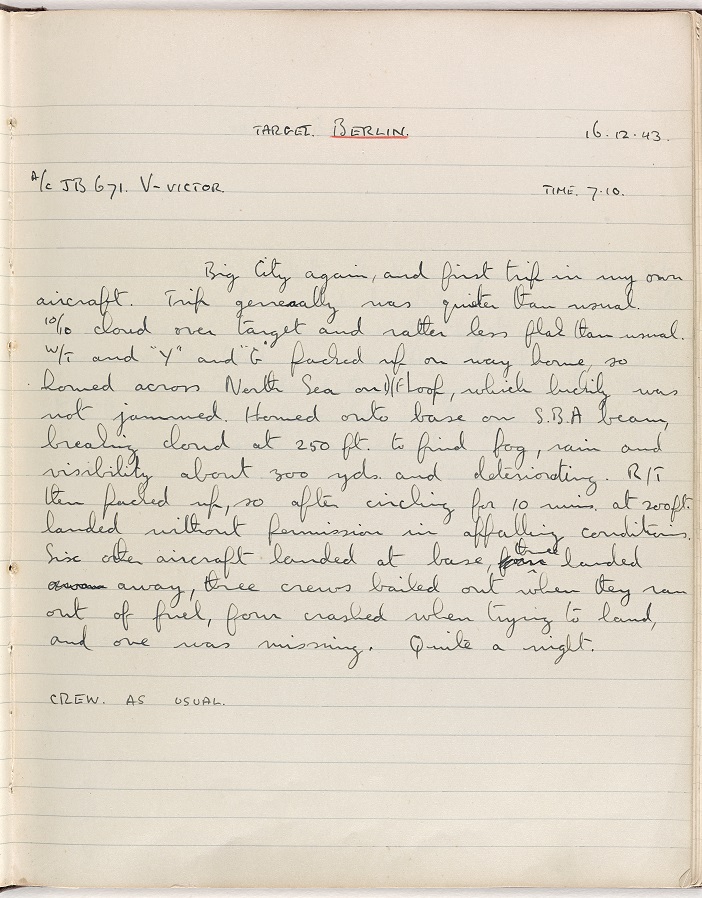 TARGET. BERLIN. 16.12.43.
A/c JB 671. V-VICTOR. TIME. 7.10.
Big City again, and first trip in my own
aircraft. Trip generally was quieter than usual.
10/10 cloud over target and rather less flak than usual.
W/T and "Y" and "G" packed up on way home, so
homed across North Sea on D/F loop, which luckily was
not jammed. Homed onto base on S.B.A beam,
breaking cloud at 250 ft. to find fog, rain and
visibility about 300 yds. and deteriorating. R/T
then packed up, so after circling for 10 mins. at 200ft.
landed without permission in appalling conditions.
Six other aircraft landed at base, four three landed
away, three crews bailed out when they ran
out of fuel, four crashed when trying to land,
and one was missing. Quite a night.
CREW. AS USUAL.